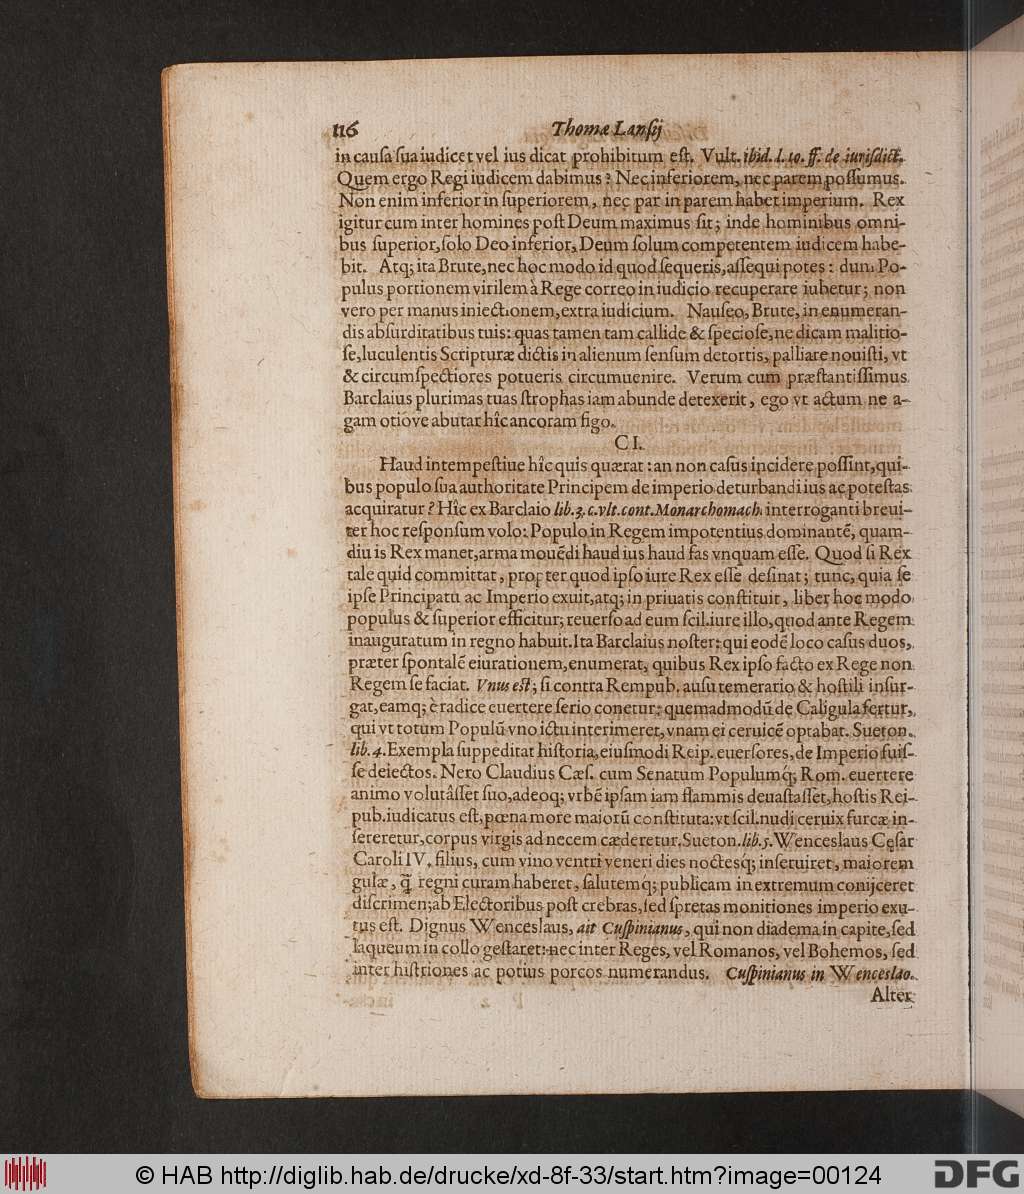 116 Thomæ Lanſij
in cauſa ſua iudicet vel ius dicat prohibitum eſt. Vult. ibid. l. 10. ff. de iuriſdict.
Quem ergo Regi iudicem dabimus? Nec inferiorem, nec parem poſſumus.
Non enim inferior in ſuperiorem, nec par in parem habet imperium. Rex
igitur cum inter homines poſt Deum maximus ſit; inde hominibus omni-
bus ſuperior, ſolo Deo inferior, Deum ſolum competentem iudicem habe-
bit. Atq; ita Brute, nec hoc modo id quod ſequeris, aſſequi potes: dum Po-
pulus portionem virilem à Rege correo in iudicio recuperare iubetur; non
vero per manus iniectionem, extra iudicium. Nauſeo, Brute, in enumeran-
dis abſurditatibus tuis: quas tamen tam callide & ſpecioſe, ne dicam malitio-
ſe, luculentis Scripturæ dictis in alienum ſenſum detortis, palliare nouiſti, vt
& circumſpectiores potueris circumuenire. Verum cum præſtantiſſimus
Barclaius plurimas tuas ſtrophas iam abunde detexerit, ego vt actum ne a-
gam otiove abutar hîc ancoram figo.
CI.
Haud intempeſtiue hîc quis quærat: an non caſus incidere poſſint, qui-
bus populo ſua authoritate Principem de imperio deturbandi ius ac poteſtas
acquiratur? Hîc ex Barclaio lib. 3. c. vlt. cont. Monarchomach. interroganti breui-
ter hoc reſponſum volo: Populo in Regem impotentius dominantē, quam-
diu is Rex manet, arma mouēdi haud ius haud fas vnquam eſſe. Quod ſi Rex
tale quid committat, propter quod ipſo iure Rex eſſe deſinat; tunc, quia ſe
ipſe Principatu ac Imperio exuit, atq; in priuatis conſtituit, liber hoc modo
populus & ſuperior efficitur; reuerſo ad eum ſcil. iure illo, quod ante Regem
inauguratum in regno habuit. Ita Barclaius noſter: qui eodē loco caſus duos,
præter ſpontalē eiurationem, enumerat, quibus Rex ipſo facto ex Rege non
Regem ſe faciat. Vnus eſt; ſi contra Rempub. auſu temerario & hoſtili inſur-
gat, eamq; è radice euertere ſerio conetur: quemadmodū de Caligula fertur,
qui vt totum Populū vno ictu interimeret, vnam ei ceruicē optabat. Sueton.
lib. 4. Exempla ſuppeditat hiſtoria, eiuſmodi Reip. euerſores, de Imperio fuiſ-
ſe deiectos. Nero Claudius Cæſ. cum Senatum Populumq́; Rom. euertere
animo volutâſſet ſuo, adeoq; vrbē ipſam iam flammis deuaſtaſſet, hoſtis Rei-
pub. iudicatus eſt, pœna more maiorū conſtituta: vt ſcil. nudi ceruix furcæ in-
ſereretur, corpus virgis ad necem cæderetur. Sueton. lib. 5. Wenceslaus Cęſar
Caroli IV. filius, cum vino ventri veneri dies noctesq; inſeruiret, maiorem
gulæ, q̃ regni curam haberet, ſalutemq́; publicam in extremum conijceret
diſcrimen; ab Electoribus poſt crebras, ſed ſpretas monitiones imperio exu-
tus eſt. Dignus Wenceslaus, ait Cuſpinianus, qui non diadema in capite, ſed
laqueum in collo geſtaret: nec inter Reges, vel Romanos, vel Bohemos, ſed
inter hiſtriones ac potius porcos numerandus. Cuſpinianus in Wenceslao.
Alter
© HAB http://diglib.hab.de/drucke/xd-8f-33/start.htm?image=00124
DFG